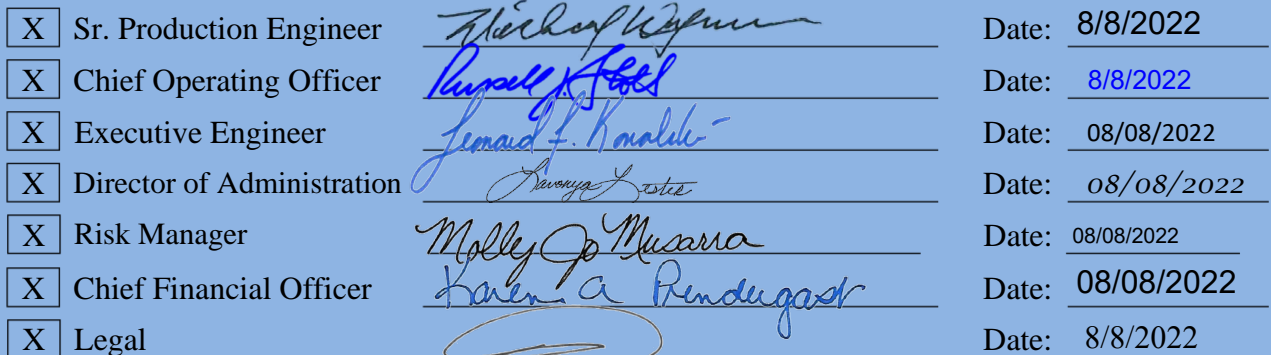 X Sr. Production Engineer Michael Date: 8/8/2022
X Chief Operating Officer Russell J. Date: 8/8/2022
X Executive Engineer Leonard F. Date: 08/08/2022
X Director of Administration Lavonya Lester Date: 08/08/2022
X Risk Manager Molly Jo Musarra Date: 08/08/2022
X Chief Financial Officer Karen A Prendergast Date: 08/08/2022
X Legal Date: 8/8/2022